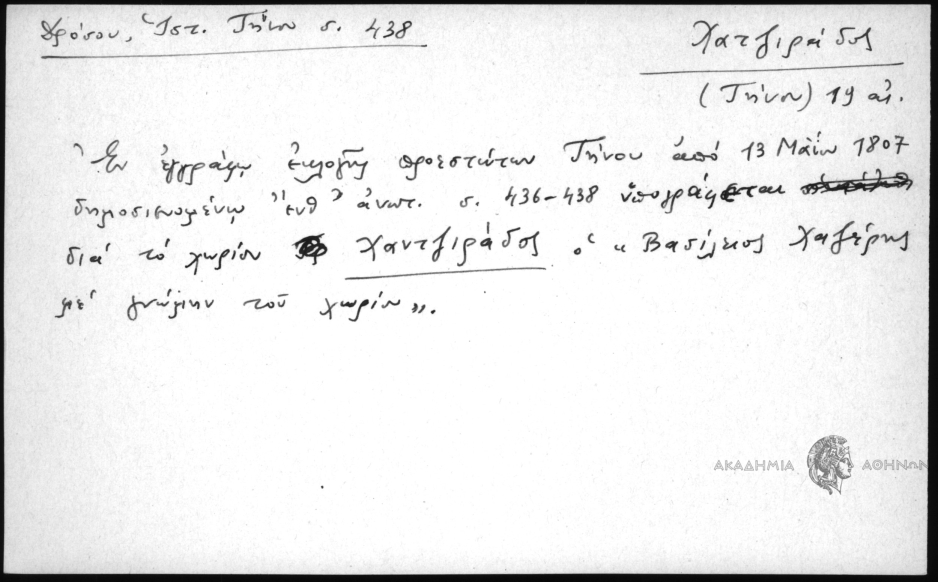 Δρόσου, Ἱστ. Τήνου σ. 438
Χατζιράδος
(Τήνου) 19 αἰ.
Ἐν ἐγγράφῳ ἐκλογῆς προεστώτων Τήνου ἀπό 13 Μαΐου 1807
δημοσιευομένῳ ἔνθ' ἀνωτ. σ. 436-438 ὑπογράφεται
διά τό χωρίον Χαντζιράδος ὁ « Βασίλειος Χαζέρης
μέ γνώμην τοῦ χωρίου».
ΑΚΑΔΗΜΙΑ ΑΘΗΝΩΝ